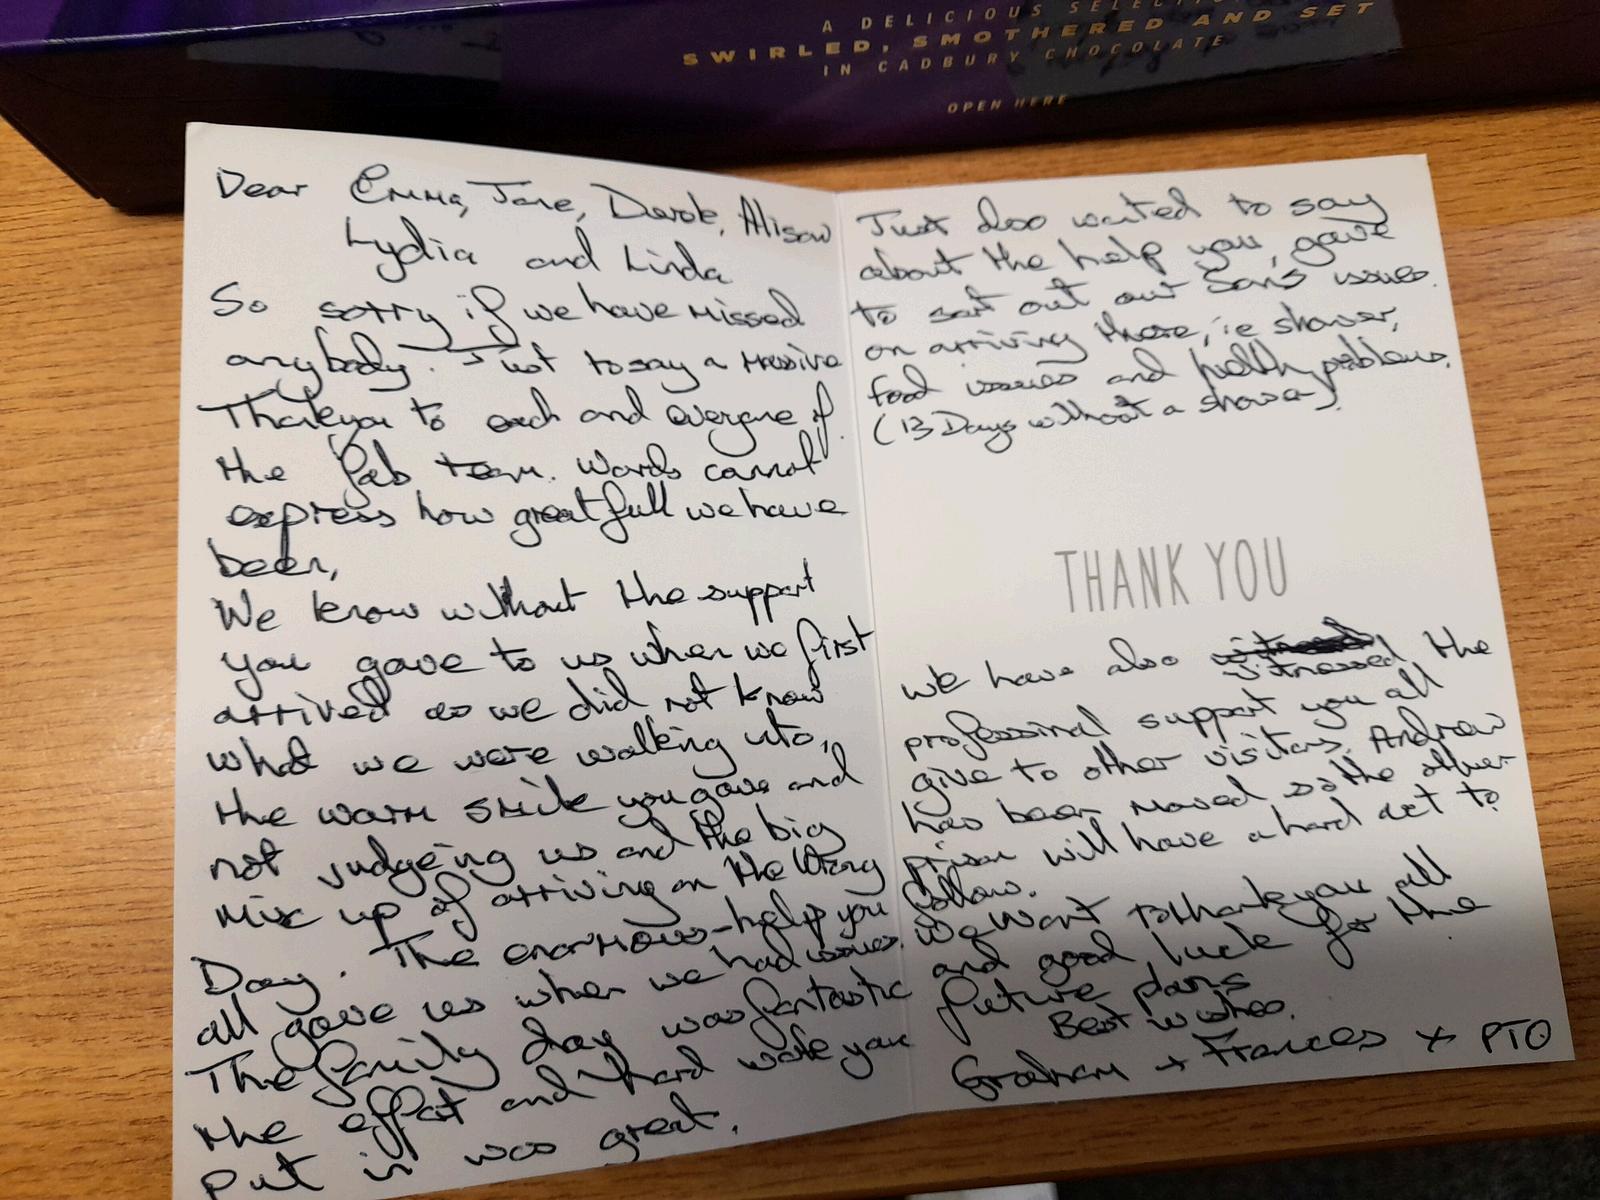 A DELICIOUS SELECTION
SWIRLED, SMOTHERED AND SET
IN CADBURY CHOCOLATE
OPEN HERE
Dear Emma, Jane, Derek, Alison
Lydia and Linda
So sorry if we have missed
anybody. Just to say a massive
Thankyou to each and everyone of
the team. Words cannot
express how greatfull we have
been,
We know without the support
you gave to us when we first
arrived as we did not know
what we were walking into,
the warm smile you gave and
not judgeing us and the big
mix up of arriving on the wrong
Day. The enormous help you
all gave us when we had issues.
The family day was fantastic
the effort and hard work you
put in was great.
Just also wanted to say
about the help you gave
to sort out our Son's issues.
on arriving there, ie shower,
food issues and health problems.
(13 Days without a shower).
THANK YOU
we have also witnessed the
professional support you all
give to other visitors. Andrew
has been moved so the other
prison will have a hard act to
follow.
We want to thankyou all
and good luck for the
future plans
Best wishes.
Graham + Frances x PTO